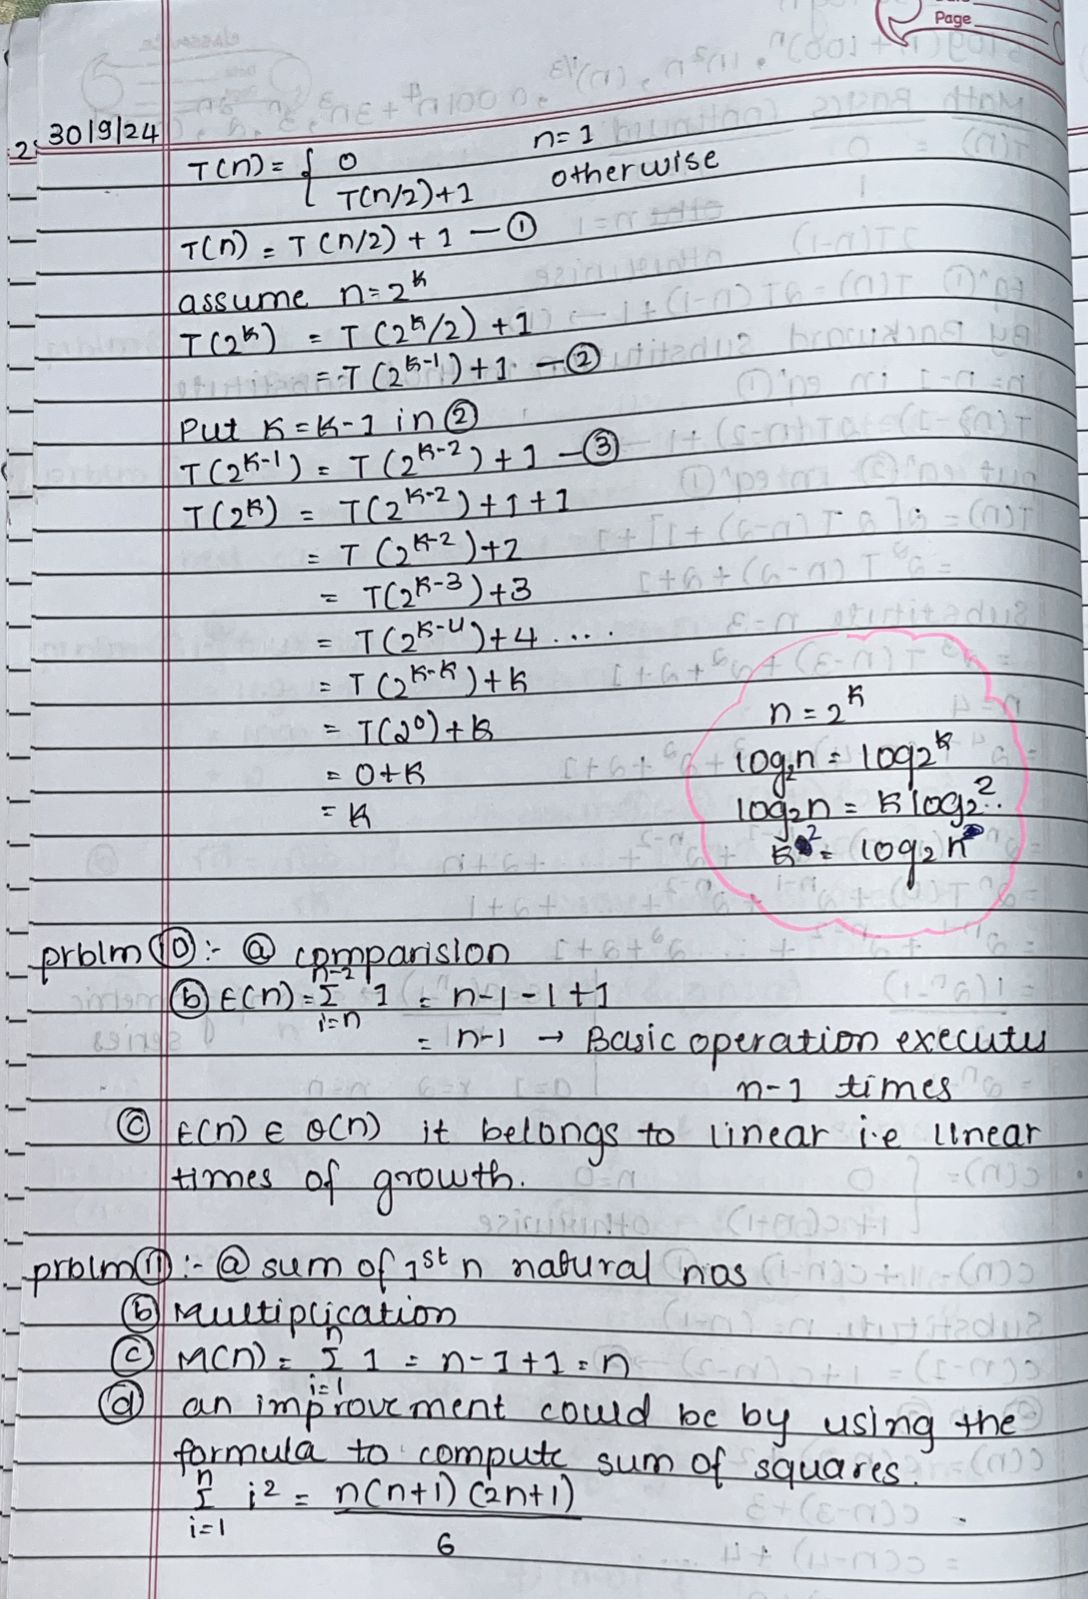 Page
2.
30/9/24
T(n) = { 0 n=1
T(n/2)+1 otherwise
T(n) = T(n/2) + 1 — ①
assume n=2^k
T(2^k) = T(2^k/2) + 1
= T(2^k-1) + 1 — ②
Put k = k-1 in ②
T(2^k-1) = T(2^k-2) + 1 — ③
T(2^k) = T(2^k-2) + 1 + 1
= T(2^k-2)+2
= T(2^k-3)+3
= T(2^k-4)+4 ....
= T(2^k-k)+k
= T(2^0)+k
= 0+k
= k
n = 2^k
log₂n = log2^k
log₂n = k log₂2
k = log₂n
prblm ⑩:- ⓐ comparision
ⓑ t(n) = n-2 Σ i=n 1 = n-1-1+1
= n-1 → Basic operation executes
n-1 times
ⓒ t(n) ∈ θ(n) it belongs to linear i.e linear
times of growth.
prblm ⑪:- ⓐ sum of 1st n natural nos
ⓑ Multiplication
ⓒ M(n) = n Σ i=1 1 = n-1+1 = n
ⓓ an improvement could be by using the
formula to compute sum of squares.
n Σ i=1 i² = n(n+1)(2n+1)
6